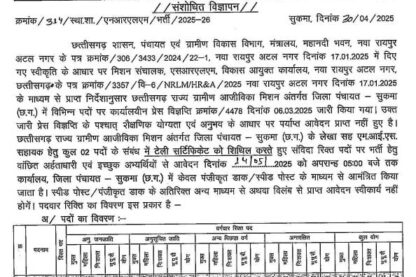 //संशोधित विज्ञापन//
क्रमांक/314/स्था.शा./एनआरएलएम/भर्ती/2025-26 सुकमा, दिनांक 30/04/2025
छत्तीसगढ़ शासन, पंचायत एवं ग्रामीण विकास विभाग, मंत्रालय, महानदी भवन, नवा रायपुर
अटल नगर के पत्र क्रमांक 306/3433/2024/22-1, नवा रायपुर अटल नगर दिनांक 17.01.2025 में
दिए गए स्वीकृति के आधार पर मिशन संचालक, एसआरएलएम, विकास आयुक्त कार्यालय, नवा रायपुर अटल नगर,
छत्तीसगढ़ के पत्र क्रमांक 3357/वि-6/NRLM/HR&A/2025 नवा रायपुर अटल नगर दिनांक 17.01.2025
के माध्यम से प्राप्त निर्देशानुसार छत्तीसगढ़ राज्य ग्रामीण आजीविका मिशन अंतर्गत जिला पंचायत - सुकमा
(छ.ग.) में विभिन्न पदों पर कार्यालयीन प्रेस विज्ञप्ति क्रमांक/4478 दिनांक 06.03.2025 जारी किया गया। उक्त
जारी प्रेस विज्ञप्ति के पश्चात शैक्षणिक योग्यता एवं अनुभव के आधार पर पर्याप्त आवेदन प्राप्त नहीं हुए है।
छत्तीसगढ़ राज्य ग्रामीण आजीविका मिशन अंतर्गत जिला पंचायत - सुकमा (छ.ग.) के लेखा सह एम.आई.एस.
सहायक हेतु कुल 02 पदों के संबंध में टेली सर्टिफिकेट को शिथिल करते हुए संविदा रिक्त पदों पर भर्ती हेतु
वांछित अर्हताधारी एवं इच्छुक अभ्यर्थियों से आवेदन दिनांक 14/05/.2025 को अपरान्ह 05:00 बजे तक
कार्यालय, जिला पंचायत - सुकमा (छ.ग.) में केवल पंजीकृत डाक/स्पीड पोस्ट के माध्यम से आमंत्रित किया
जाता है। स्पीड पोस्ट/पंजीकृत डाक के अतिरिक्त अन्य माध्यम से अथवा विलंब से प्राप्त आवेदन स्वीकार्य नहीं
होगें। पदवार रिक्ति का विवरण इस प्रकार है -
अ/ पदों का विवरण :-
वर्गवार रिक्त पद
पदनाम रिक्त पद अनु जनजाति अनुसूचित जाति अन्य पिछड़ा वर्ग अनारक्षित कुल योग